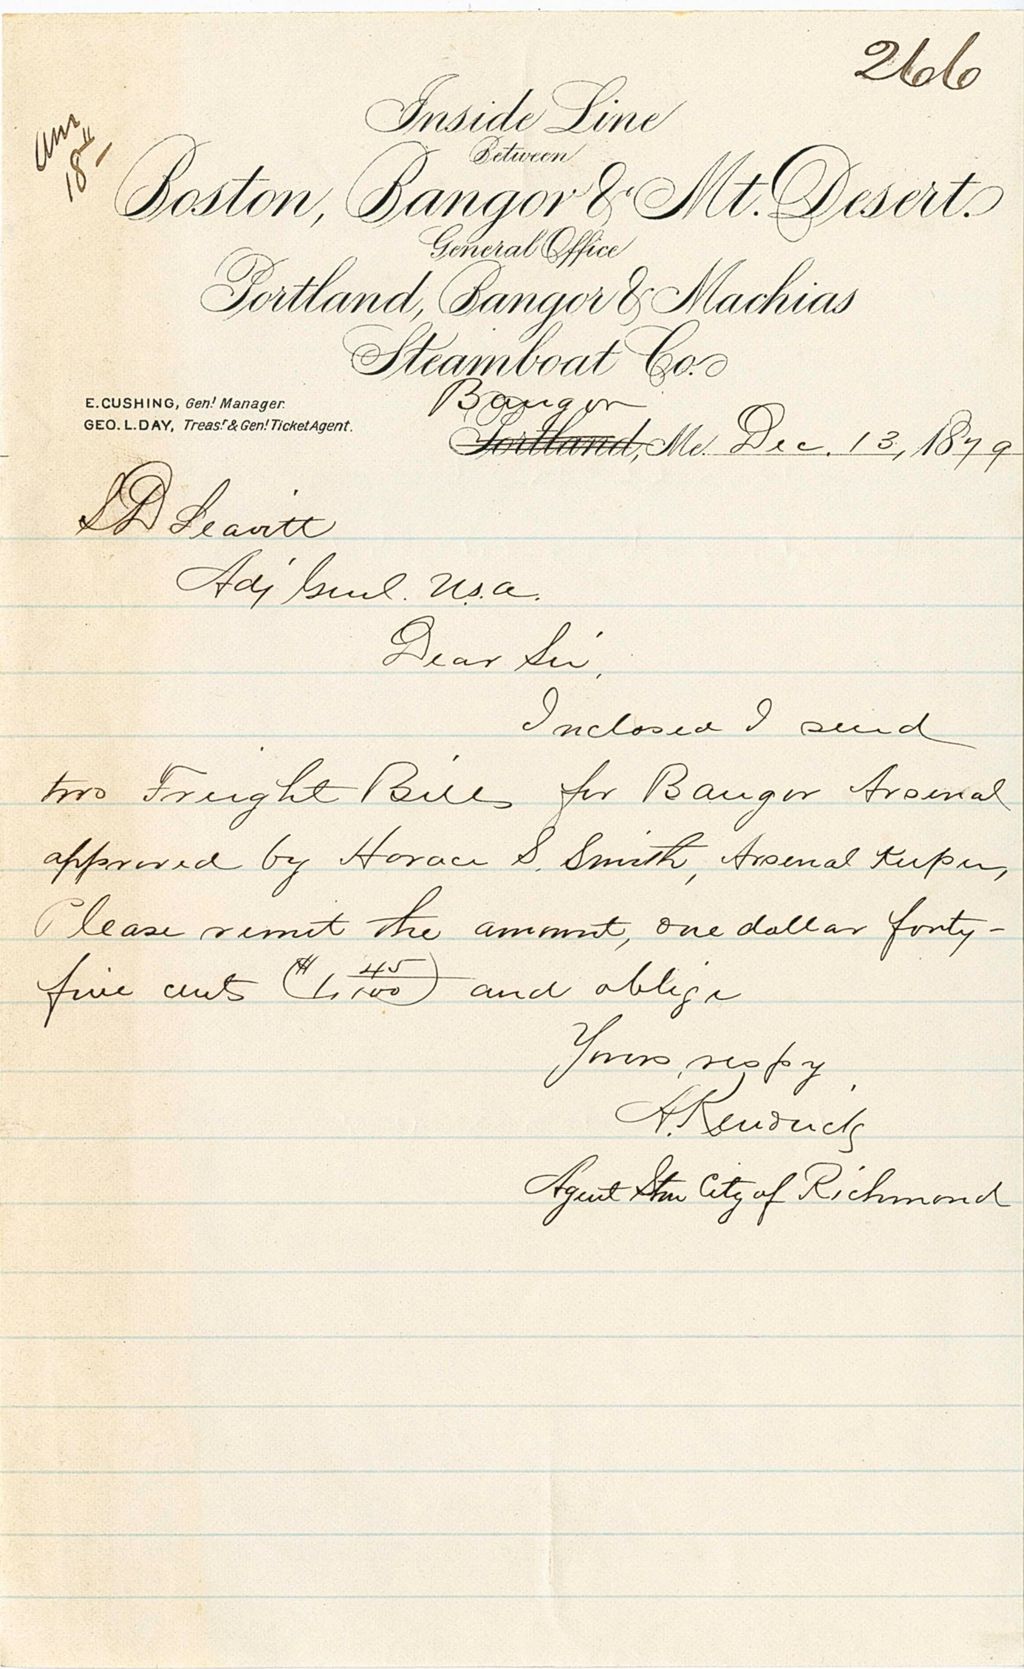 266
Ans
18th
Inside Line
Between
Boston, Bangor & Mt. Desert.
General Office
Portland, Bangor & Machias
Steamboat Co.
E. CUSHING, Gen! Manager.
GEO. L. DAY, Treas.r & Gen! Ticket Agent.
Bangor
Portland, Me. Dec. 13, 1879
S D Leavitt
Adj Genl. U.S.A.
Dear Sir,
Inclosed I send
two Freight Bills for Bangor Arsenal
approved by Horace S. Smith, Arsenal Keeper,
Please remit the amount, one dollar forty-
five cents ($1. 45/100) and oblige
Yours, respy
A. Kendricks
Agent Stm City of Richmond